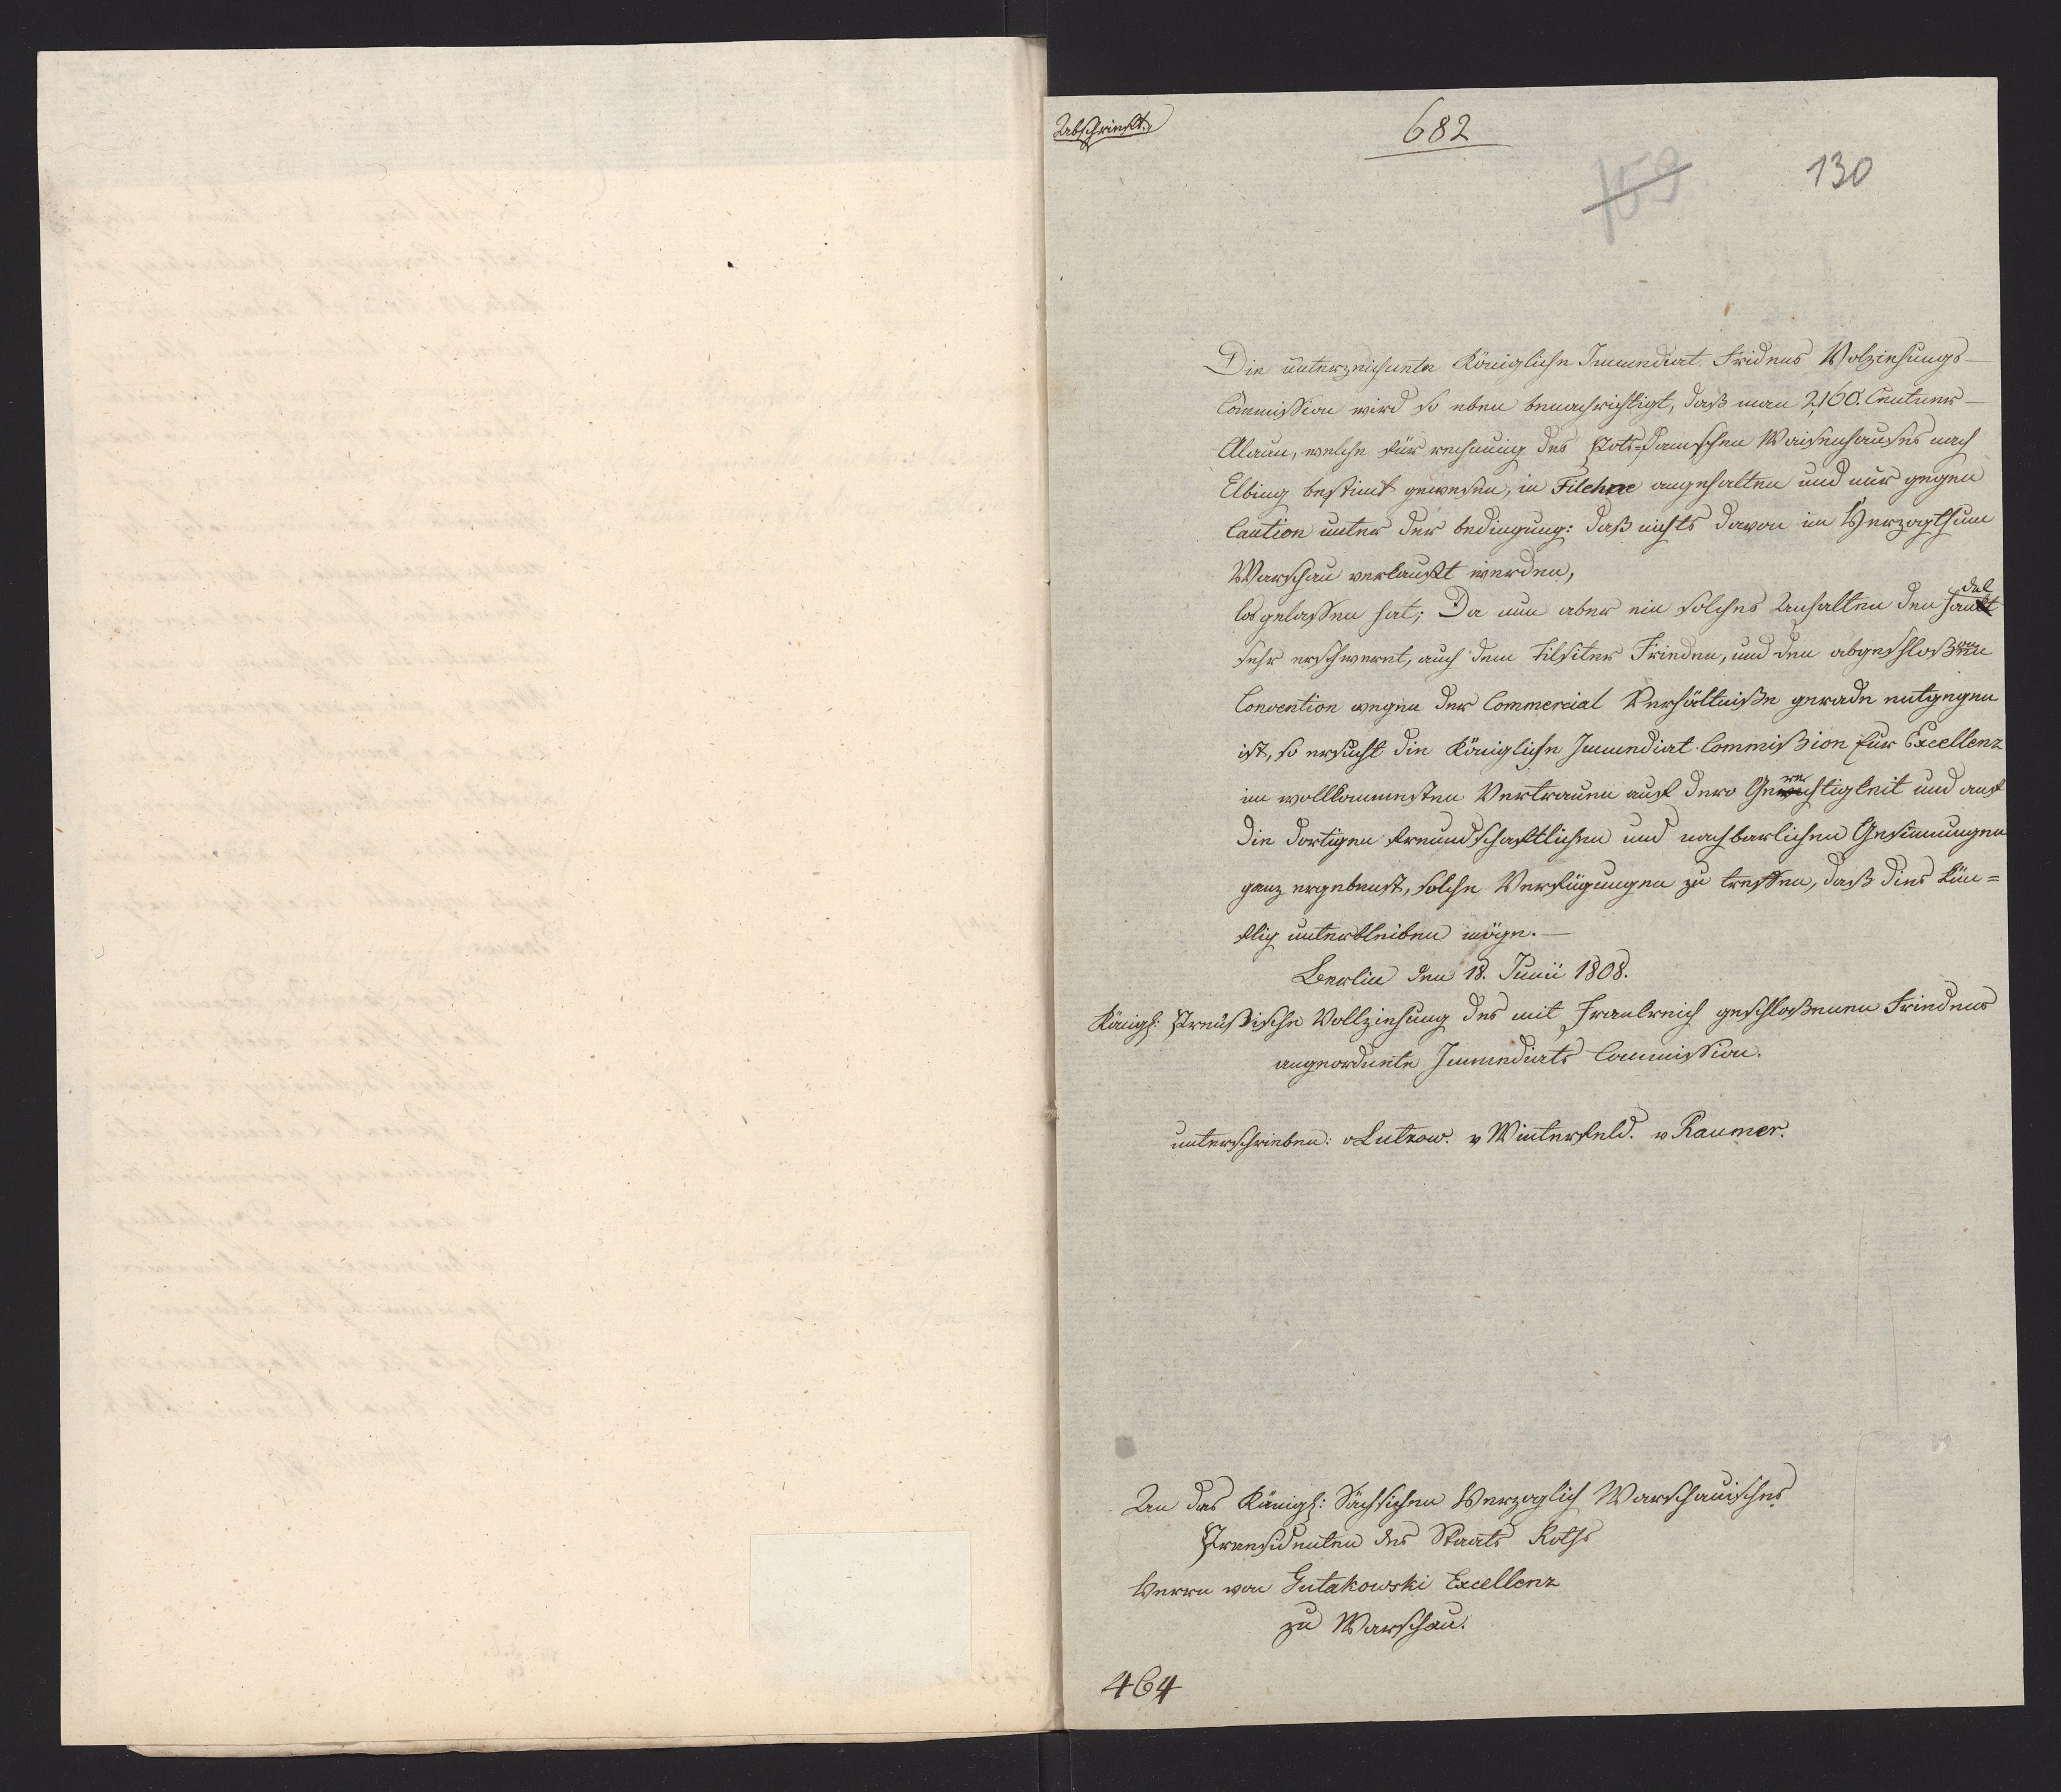 Abschrieft.
682
159
130
Die unterzeichnete Königliche Immediat Fridens Volziehungs
Commission wird so eben benachrichtigt, daß man 2,160. Centner
Alaun, welche für rechnung des Pots-damschen Waisenhauses nach
Elbing bestimt gewesen, in Filehne angehalten und nur gegen
Caution unter der bedingung: daß nichts davon im Herzogthum
Warschau verkauft werden,
los gelassen hat; Da nun aber ein solches Anhalten den Handel
sehr erschweret, auch dem Tilsiter Frieden, und den abgeschloßenen
Convention wegen der Commercial Verhältniße gerade entgegen
ist, so ersucht die Königliche Immediat Commißion Eur Excellenz
im vollkommesten Vertrauen auf dero Gerechtigkeit und auf
die dortigen freundschaftlichen und nachbarlichen Gesinnungen
ganz ergebenst, solche Verfügungen zu treffen, daß dies kün=
ftig unterbleiben möge.
Berlin den 18. Junii 1808.
Königl: Preußische Vollziehung des mit Frankreich geschloßenen Friedens
angeordnete Immediats Commission.
unterschrieben: v Lutzow. v Winterfeld. v Raumer.
An das Königl: Sächsischen Herzoglich Warschauisches
Praesidenten des Staats Raths
Herrn von Gutakowski Excellenz
zu Warschau.
464